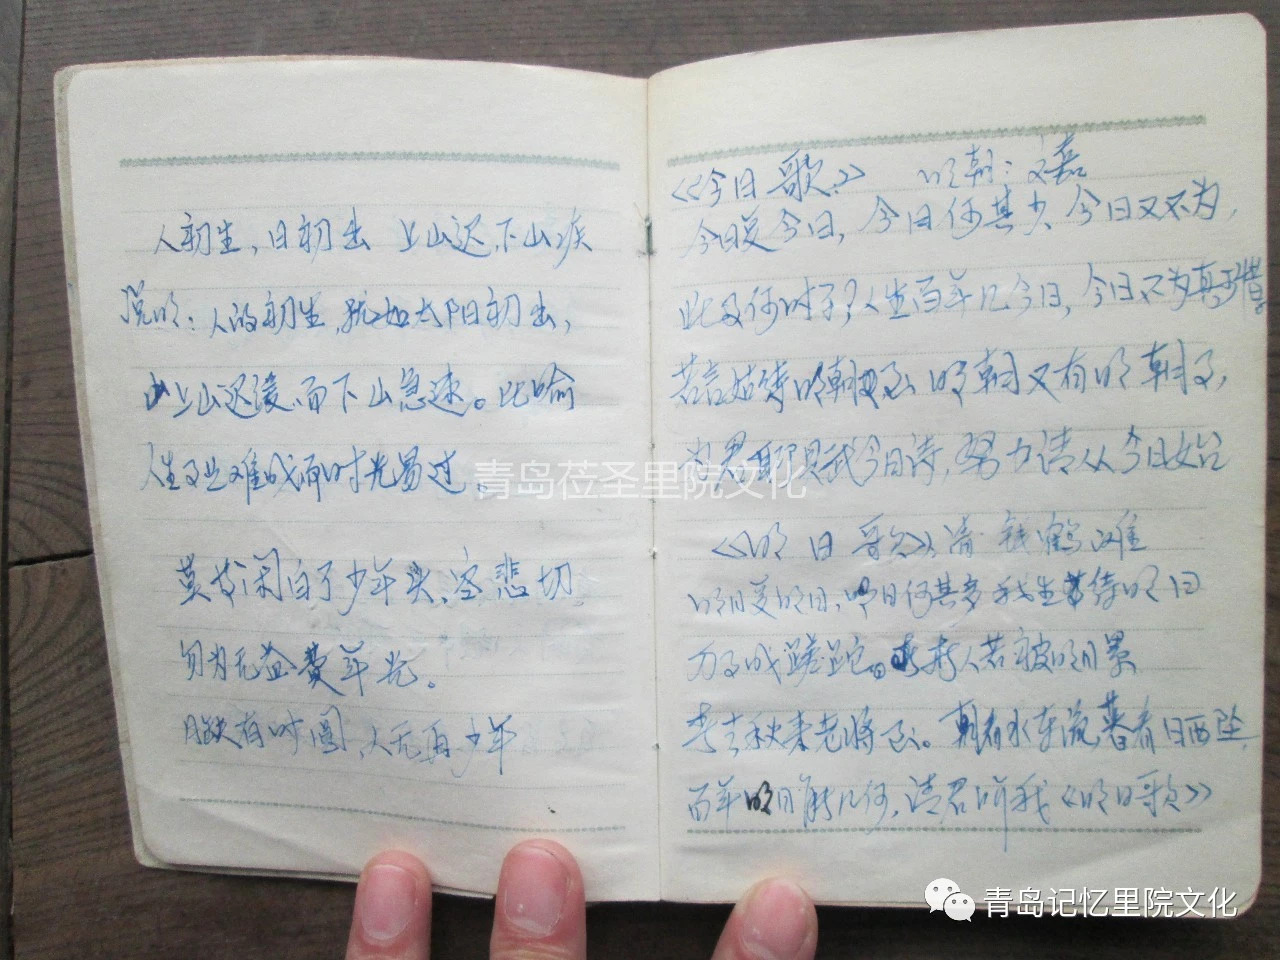 人初生，日初出 上山迟，下山疾
说明：人的初生，就如太阳初出，
上山迟缓，而下山急速。比喻
人生事业难成而时光易过。
莫等闲白了少年头，空悲切
勿为无益费年光。
月缺有时圆，人无再少年
《今日歌》 明朝：文嘉
今日复今日，今日何其少，今日又不为，
此事何时了？人生百年几今日，今日不为真可惜
若言姑待明朝至，明朝又有明朝事，
为君聊赋今日诗，努力请从今日始
《明日歌》清 钱鹤滩
明日复明日，明日何其多 我生待明日
万事成蹉跎。世人若被明日累
春去秋来老将至。朝看水东流，暮看日西坠，
百年明日能几何，请君听我《明日歌》
青岛莅圣里院文化
青岛记忆里院文化